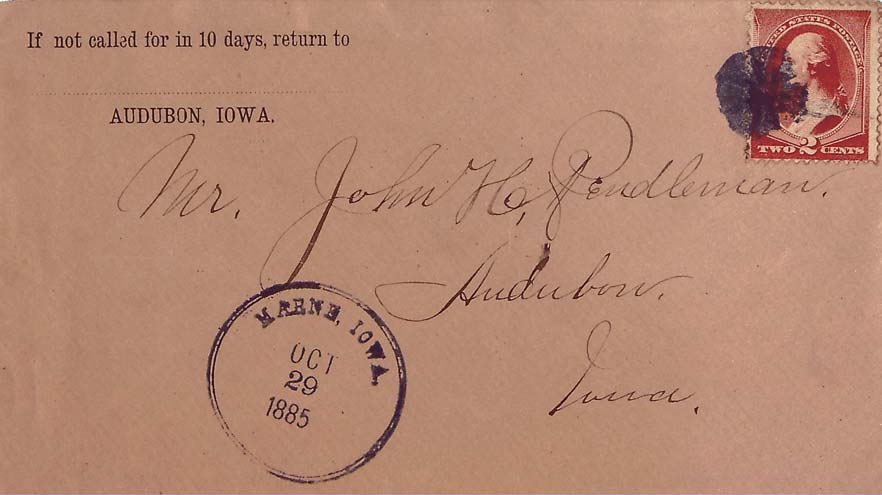 If not called for in 10 days, return to
AUDUBON, IOWA.
UNITED STATES POSTAGE
TWO 2 CENTS
Mr. John H. Pendleman.
Audubon.
Iowa.
MARNE, IOWA.
OCT
29
1885